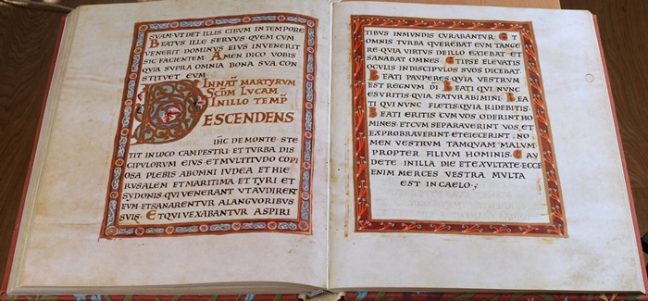 SVAM·VT DET ILLIS CIBVM IN TEMPORE
BEATVS ILLE SERVVS QVEM CVM
VENERIT DOMINVS EIVS INVENERIT
SIC FACIENTEM· AMEN DICO VOBIS
QVIA SVPRA OMNIA BONA SVA CON
STITVET EVM·
IN NAT MARTYRVM
SCDM LVCAM
IN ILLO TEMP
DESCENDENS
IHC DE MONTE· STE
TIT IN LOCO CAMPESTRI ET TVRBA DIS
CIPVLORVM EIVS ET MVLTITVDO COPI
OSA PLEBIS AB OMNI IVDEA ET HIE
RVSALEM ET MARITIMA ET TYRI ET
SYDONIS QVI VENERANT VT AVDIRENT
EVM ET SANARENTVR A LANGVORIBVS
SVIS· ET QVI VEXABANTVR A SPIRI
TIBVS INMVNDIS CVRABANTVR· ET
OMNIS TVRBA QVEREBAT EVM TANGE
RE· QVIA VIRTVS DE ILLO EXIEBAT ET
SANABAT OMNES· ET IPSE ELEVATIS
OCVLIS IN DISCIPVLOS SVOS DICEBAT·
BEATI PAVPERES QVIA VESTRVM
EST REGNVM DI· BEATI QVI NVNC
ESVRITIS QVIA SATVRABIMINI· BEA
TI QVI NVNC FLETIS QVIA RIDEBITIS·
BEATI ERITIS CVM VOS ODERINT HO
MINES· ET CVM SEPARAVERINT VOS ET
EXPROBAVERINT ET EIECERINT· NO
MEN VESTRVM TAMQVAM MALVM
PROPTER FILIVM HOMINIS· GAV
DETE IN ILLA DIE ET EXVLTATE· ECCE
ENIM MERCES VESTRA MVLTA
EST IN CAELO·;